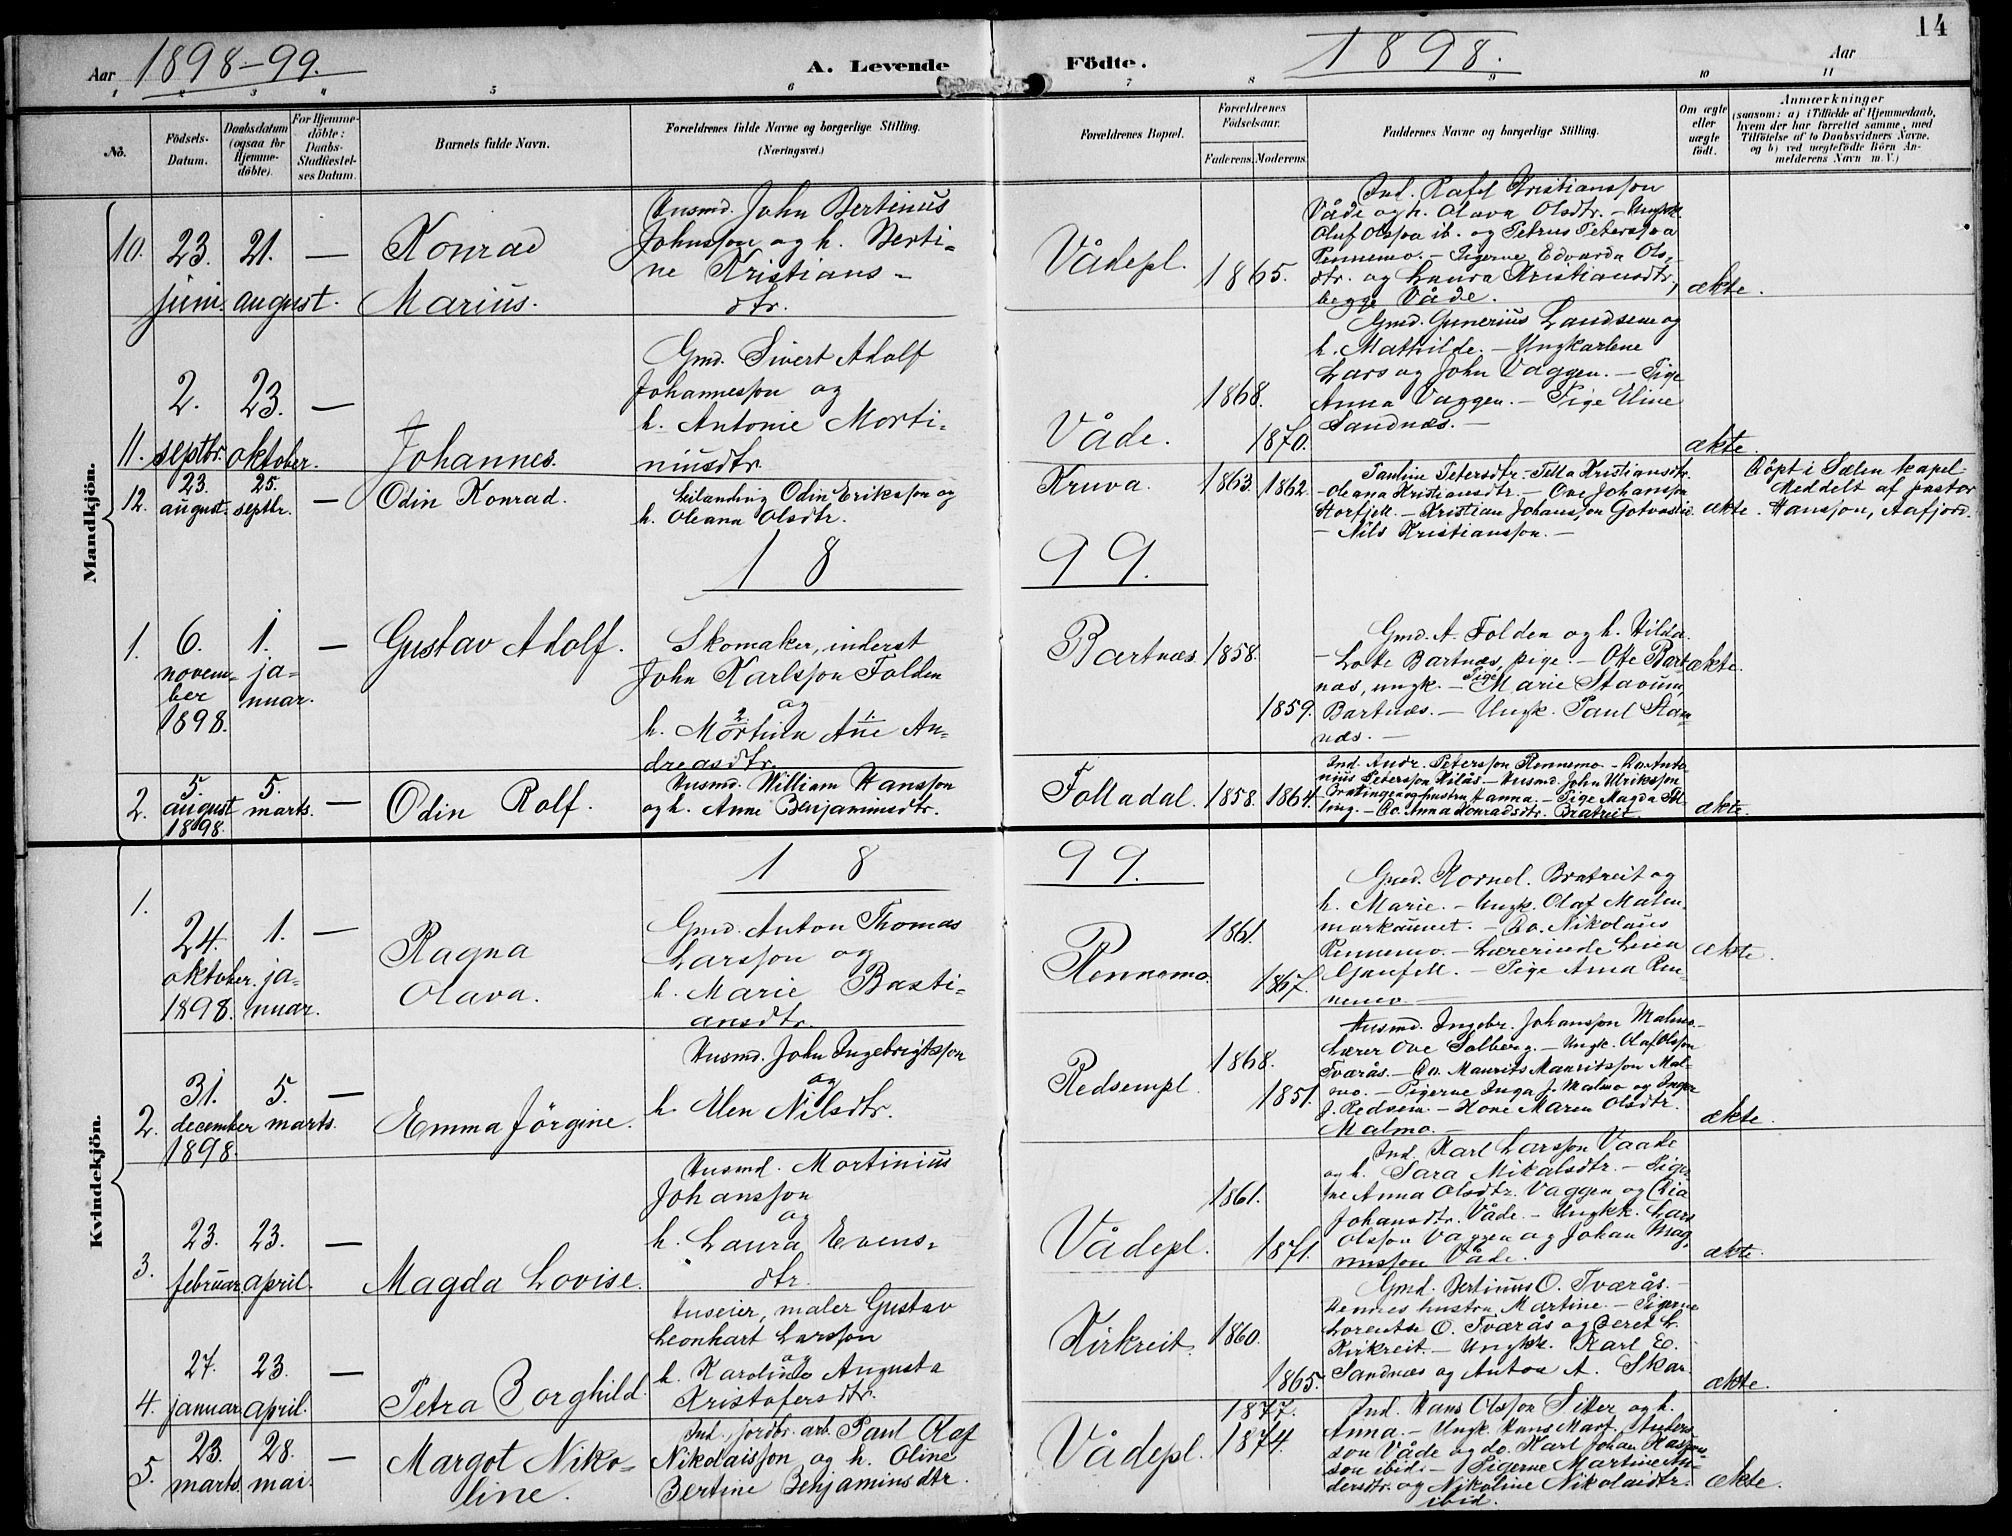 14
Aar 1898-99.
A. Levende Födte.
1898.
Aar
1 2 3 4 5 6 7 8 9 10 11
No.
Födsels-Datum.
Daabsdatum (ogsaa for Hjemme-döbte).
For Hjemme-döbte: Daabs-Stadfæstel-ses Datum.
Barnets fulde Navn.
Forældrenes fulde Navne og borgerlige Stilling.
(Næringsvei.)
Forældrenes Bopæl.
Forældrenes Födselsaar.
Faderens. Moderens.
Faddernes Navne og borgerlige Stilling.
Om ægte eller uægte födt.
Anmærkninger
(saasom: a) i Tilfælde af Hjemmedaab,
hvem der har forrettet samme, med
Tilföielse af to Daabsvidners Navne,
og b) ved uægtefödte Börn An-
melderens Navn m. V.)
Mandkjön.
10. 23. juni 21. august. —
Konrad
Marius.
Husmd. John Bertinus
Johnsson og h. Berti-
ne Kristians-
dtr.
Vådepl.
1865.
Ind. Rafel Kristiansson
Våde og h. Olava Olsdtr. — Ungkk.
Oluf Olsson ib. og Petrus Petersson
Rennemo. — Pigerne Edvarda Ols-
dtr. og Laura Kristiansdtr,
begge Våde.
ækte.
11. 2. septbr. 23. oktober. —
Johannes.
Gmd. Sivert Adolf
Johannesson og
h. Antonie Morti-
niusdtr.
Våde.
1868.
1870.
Gmd. Gunerius Landsem og
h. Mathilde. — Ungkarlene
Lars og John Vaggen. — Pige
Anna Vaggen. — Pige Eline
Sandnæs. —
ækte
12. 23. august. 25. septbr. —
Odin Konrad.
Leilending Odin Eriksson og
h. Oleana Olsdtr.
Kruva.
1863. 1862.
Pauline Petersdtr. — Petta Kristiansdtr.
— Oleana Kristiansdtr. — Ove Johansson
Storfjell. — Kristian Johansson
— Nils Kristiansson. —
ækte.
Döpt i Sælen kapel
Meddelt af pastor
Hansson, Aafjord.
18 99.
1. 6. novem-
ber
1898. 1. ja-
nuar. —
Gustav Adolf.
Skomaker, inderst
John Karlsson Folden
og
h. Mortina 2. Ane 1. An-
dreasdtr.
Bartnæs
1858.
1859.
Gmd. A. Folden og h. Hilda.
— Lotte Bartnæs, pige. — Otte Bart-
næs, ungk. — Pige Marie Stavrum,
Bartnæs. — Ungk. Paul Stam-
næs. —
ækte.
2. 5. august
1898. 5. marts. —
Odin Rolf.
Husmd. William Hansson
og h. Anne Benjaminsdtr.
Folladal.
1858. 1864.
Ind. Andr. Petersson Rennemo. — Do. Anto-
nius Petersson Hilås. — Husmd. John Ulriksson
Bratingen og hustru Hanna. — Pige Magda
— Do. Anna Konradsdtr. Bratreit.
ækte.
Kvindekjön.
18 99.
1. 24. oktober
1898. 1. ja-
nuar. —
Ragna
Olava.
Gmd. Anton Thomas
Larsson og
h. Marie Basti-
ansdtr.
Rennemo.
1861.
1867.
Gmd. Kornel. Bratreit og
h. Marie. — Ungk. Olaf Malm,
markaunet. — Do. Nikolaus
Rennemo. — Lærerinde Lina
— Pige Anna Ren-
nemo. —
ækte.
2. 31. december
1898. 5. marts. —
Emma Jörgine.
Husmd. John Ingebrigtsson
og
h. Elen Nilsdtr.
Redsempl.
1868.
1851.
Husmd. Ingebr. Johansson Malmo.—
Lærer Ove Solberg. — Ungk. Olaf Olsson
Tværås. — Do. Maurits Mauritsson Mal-
mo. — Pigerne Inga J. Malmo og Inga
J. Redsem. — Kone Maren Olsdtr.
Malmo. —
ækte.
3. 23. februar 23. april. —
Magda Lovise.
Husmd. Mortinius
Johansson
og
h. Laura Evens-
dtr.
Vådepl.
1861.
1871.
Ind. Karl Larsson Vaade
og h. Sara Mikalsdtr. — Piger-
ne Anna Olsdtr. Vaggen og
Johansdtr. Våde. — Ungkk. Lars
Olsson Vaggen og Johan Mag-
nusson Våde.
ækte.
4. 27. januar 23. april. —
Petra Borghild.
Huseier, maler Gustav
Leonhart Larsson
og
h. Karoline Augusta
Kristofersdtr.
Kirkreit.
1860.
1865.
Gmd. Bertinus O. Tværås. —
Dennes hustru Martine. — Pigerne
Lorentse O. Tværås og Beret L.
Kirkreit. — Ungkk. Karl E.
Sandnæs og Anton A. Skar.
ækte.
5. 23. marts. 28. mai. —
Margot Niko-
line.
Ind., jordbr. arb. Paul Olaf
Nikolaisson og h. Oline
Bertine Benjaminsdtr.
Vådepl.
1877.
1874.
Ind. Hans Olsson Sitter og h.
Anna. — Ungk. Hans Mart. Anders-
son Våde og do. Karl Johan
son ibid. — Pigerne Martine An-
dersdtr. og Nikoline Nikolaidtr.
ibid.
ækte.